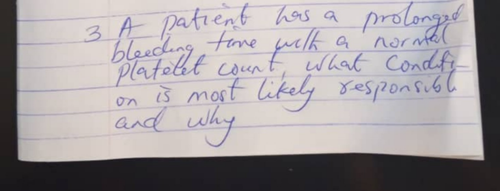 3 A patient has a prolonged
bleeding time with a normal
platelet count, what conditi-
on is most likely responsible
and why